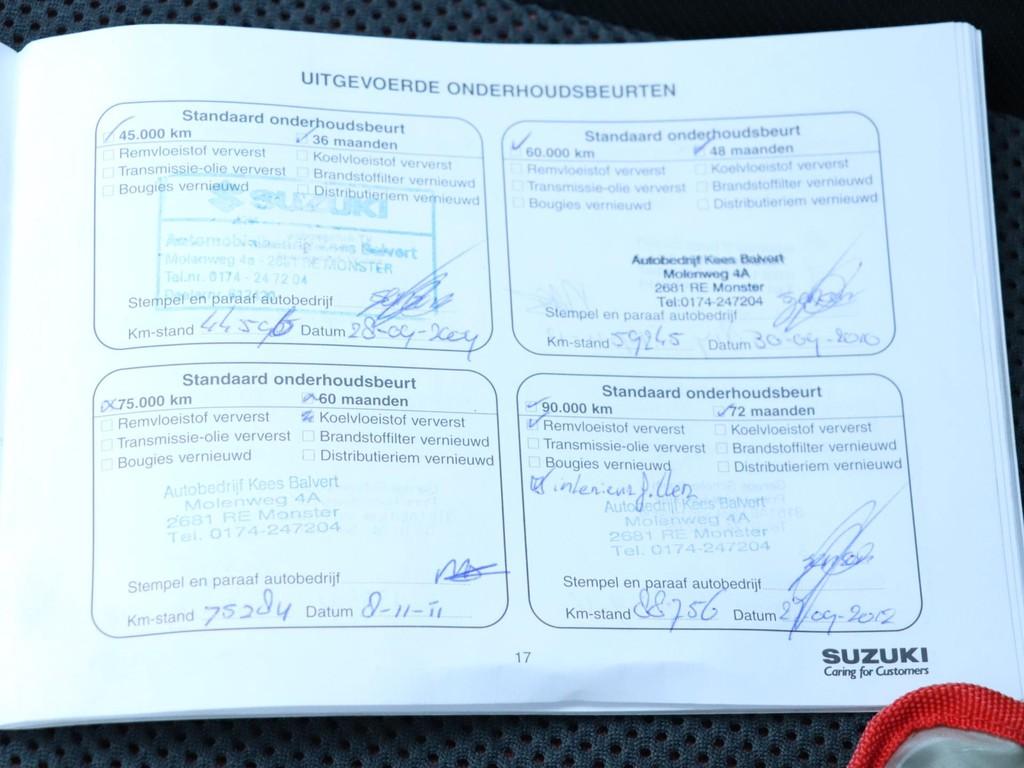 UITGEVOERDE ONDERHOUDSBEURTEN
Standaard onderhoudsbeurt
45.000 km 36 maanden
Remvloeistof ververst Koelvloeistof ververst
Transmissie-olie ververst Brandstoffilter vernieuwd
Bougies vernieuwd Distributieriem vernieuwd
SUZUKI
Kees Balvert
Molenweg 4a - 2681 RE MONSTER
Tel.nr. 0174 - 24 72 04
Stempel en paraaf autobedrijf
Km-stand Datum 28-09-2009
Standaard onderhoudsbeurt
60.000 km 48 maanden
Remvloeistof ververst Koelvloeistof ververst
Transmissie-olie ververst Brandstoffilter vernieuwd
Bougies vernieuwd Distributieriem vernieuwd
Autobedrijf Kees Balvert
Molenweg 4A
2681 RE Monster
Tel:0174-247204
Stempel en paraaf autobedrijf
Km-stand 59245 Datum 30-09-2010
Standaard onderhoudsbeurt
75.000 km 60 maanden
Remvloeistof ververst Koelvloeistof ververst
Transmissie-olie ververst Brandstoffilter vernieuwd
Bougies vernieuwd Distributieriem vernieuwd
Autobedrijf Kees Balvert
Molenweg 4A
2681 RE Monster
Tel. 0174-247204
Stempel en paraaf autobedrijf
Km-stand 75284 Datum 8-11-11
Standaard onderhoudsbeurt
90.000 km 72 maanden
Remvloeistof ververst Koelvloeistof ververst
Transmissie-olie ververst Brandstoffilter vernieuwd
Bougies vernieuwd Distributieriem vernieuwd
interieurfilter
Autobedrijf Kees Balvert
Molenweg 4A
2681 RE Monster
Tel. 0174-247204
Stempel en paraaf autobedrijf
Km-stand 88756 Datum 27-09-2012
17
SUZUKI
Caring for Customers